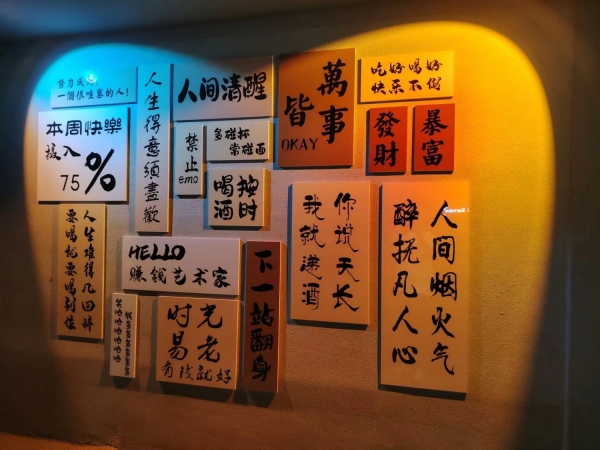 努力成
一個很哇塞的人!
本周快樂
摄入
75%
人生得意須盡歡
人间清醒
禁止
emo
多碰杯
常碰面
按时
喝酒
萬事
皆
OKAY
吃好喝好
快乐不倒
發財
暴富
人生难得几回醉
要喝就要喝到位
HELLO
赚钱艺术家
时光
易老
就好
下一站翻身
你说天长
我就递酒
人间烟火气
醉抚凡人心